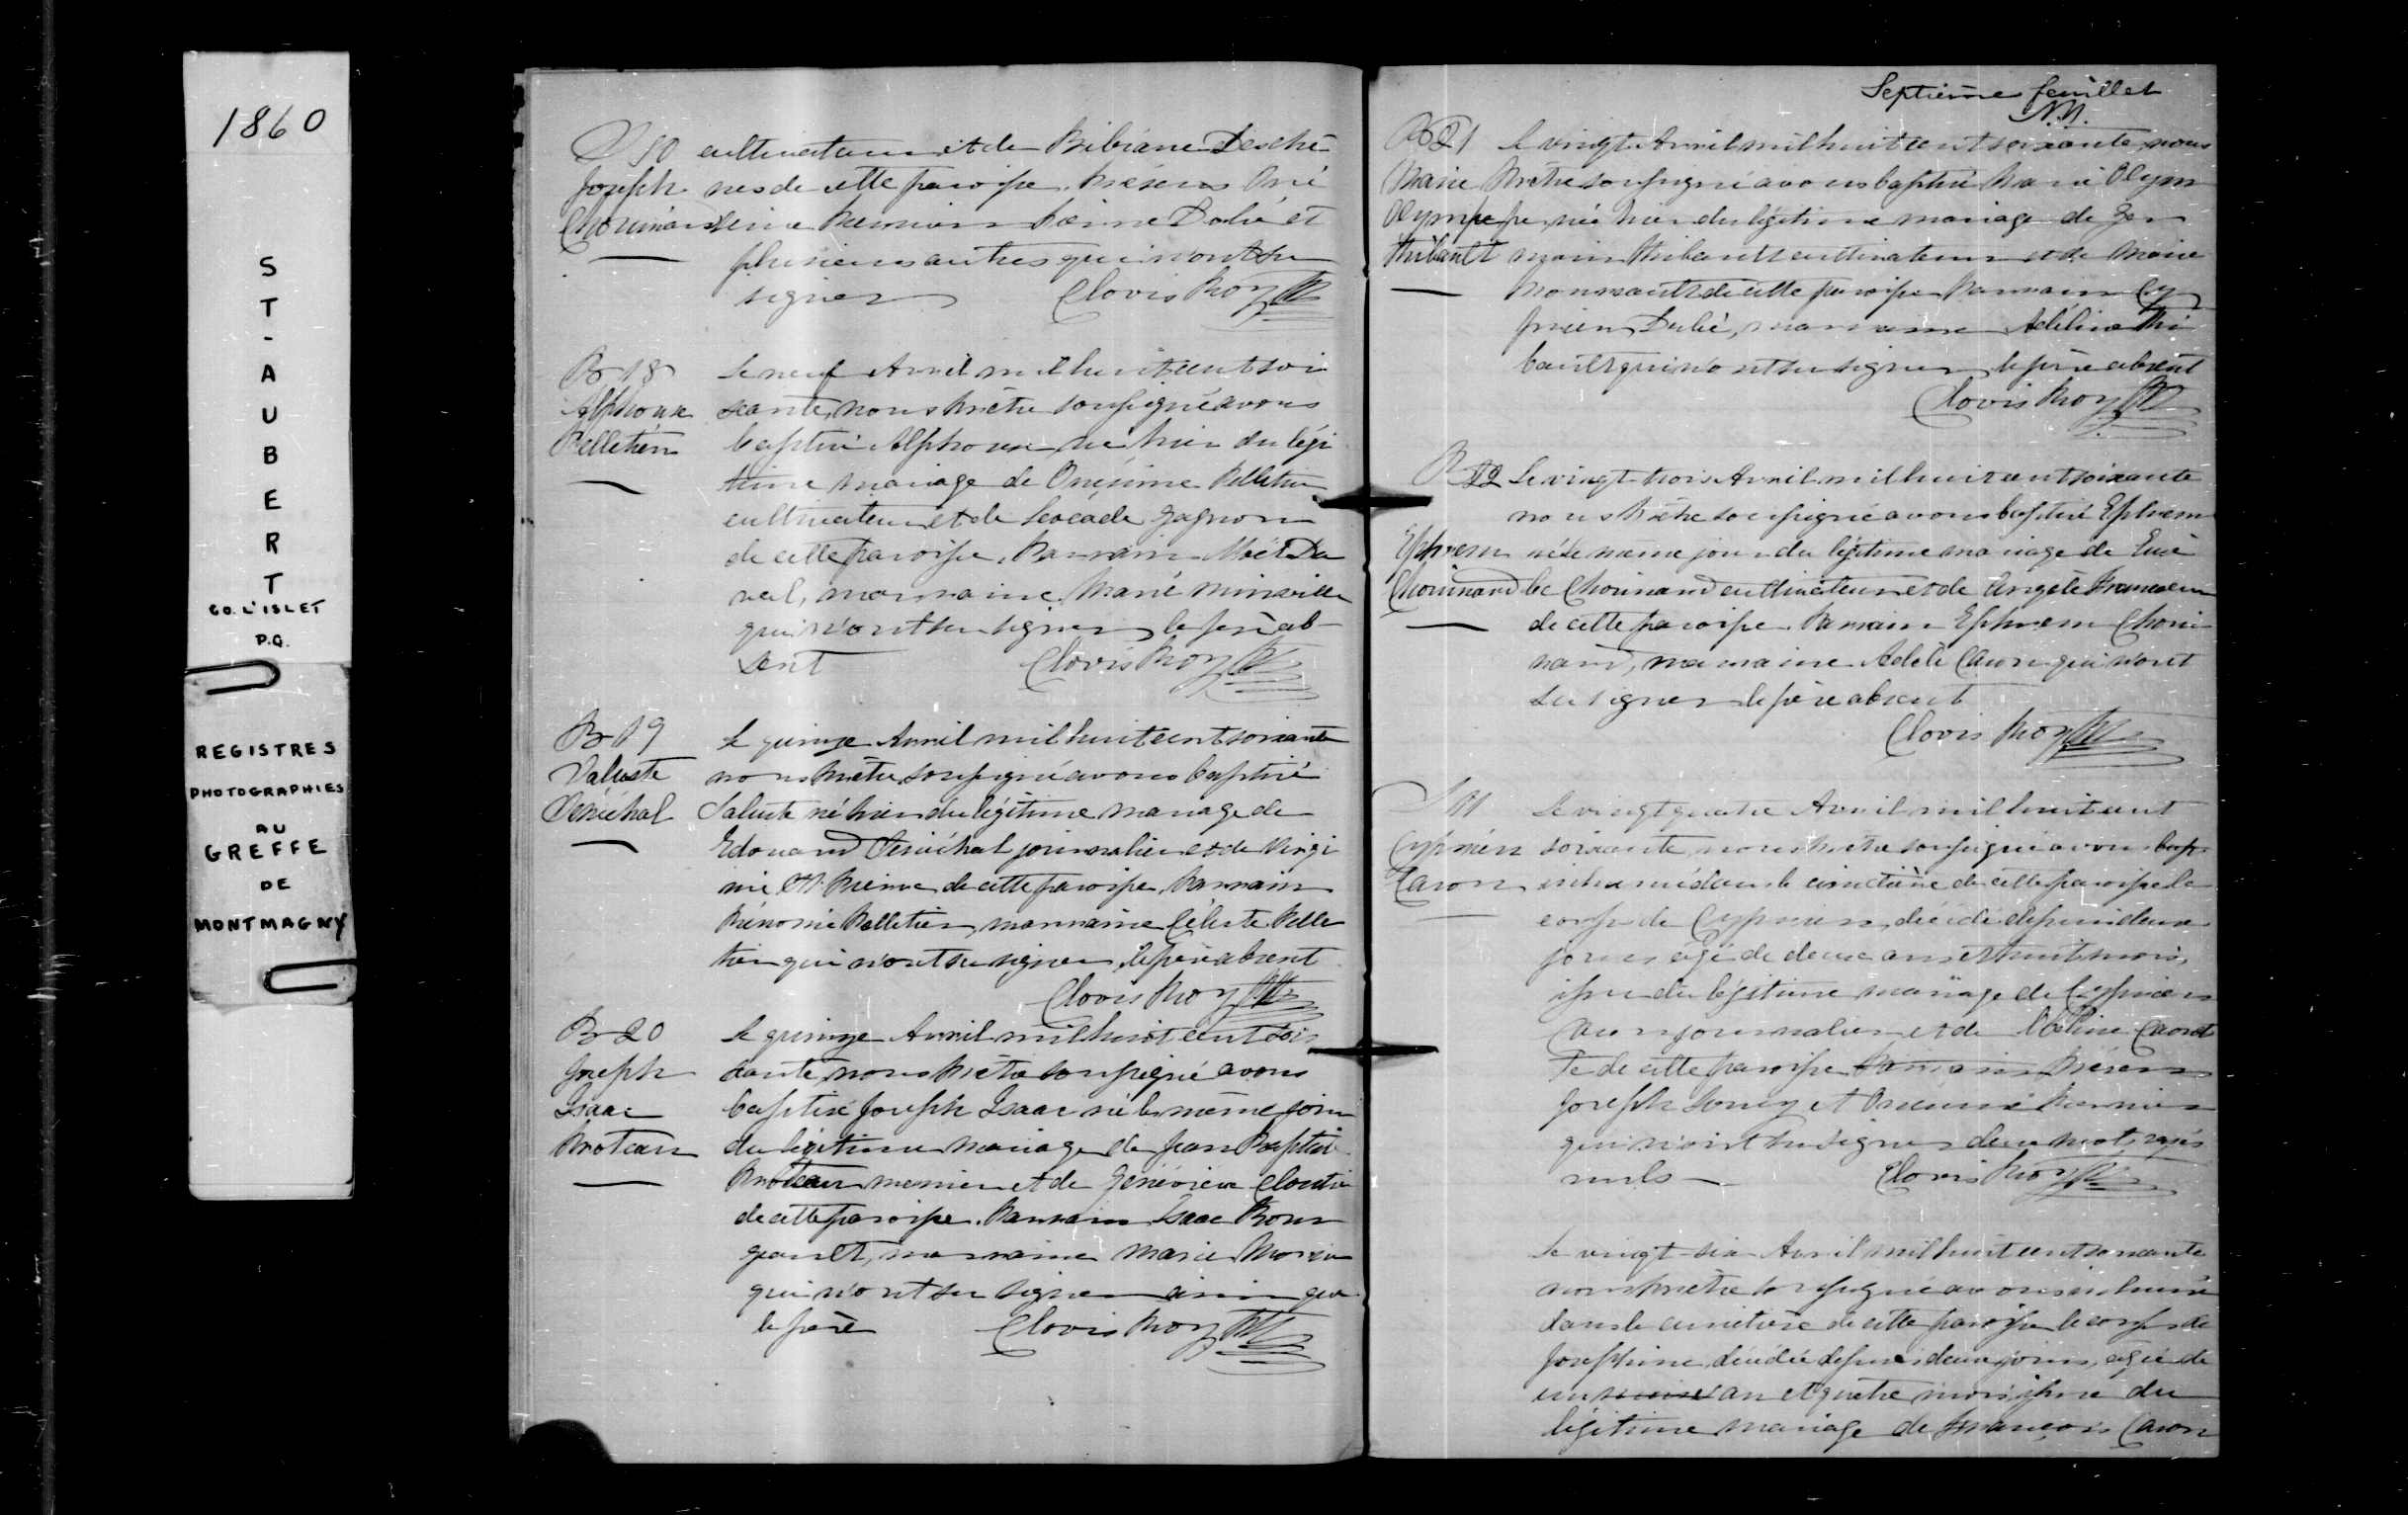 1860
S
T
-
A
U
B
E
R
T
CO. L'ISLET
P.Q.
REGISTRES
PHOTOGRAPHIES
AU
GREFFE
DE
MONTMAGNY
S 10
Joseph
Chouinard
cultivateur et de Bibiane Desche
nes de cette paroisse. Présens Oné
sime Fournier Dubé et
plusieurs autres qui n'ont su
signer Clovis Roy Ptre
B 18
Alphonse
Pelletier
Le neuf Avril mil huit cent soi
xante, nous Prêtre soussigné avons
baptisé Alphonse né hier du légi
time mariage de Onésime Pelletier
cultivateur et de Leocade Gagnon
de cette paroisse. Parrain Moël Du
val, marraine Marie Miville
qui n'ont su signer le père ab
sent Clovis Roy Ptre
B 19
Saluste
Sénéchal
Le quinze Avril mil huit cent soixante
nous Prêtre soussigné avons baptisé
Saluste né hier du légitime mariage de
Edouard Sénéchal journalier et de Virgi
nie St. Pierre de cette paroisse, Parrain
Pelletier, marraine Céleste Pelle
tier qui n'ont su signer, le père absent
Clovis Roy Ptre
B 20
Joseph
Isaac
Proteau
Le quinze Avril mil huit cent soi
xante, nous Prêtre soussigné avons
baptisé Joseph Isaac né le même jour
du légitime mariage de Jean Baptiste
Proteau menier et de Généviève Cloutier
de cette paroisse. Parrain Isaac Bour
geault, marraine Marie Morin
qui n'ont su signer ainsi que
le père Clovis Roy Ptre
Septième feuillet
N.N.
B 21
Marie
Olympe
Thibault
Le vingt Avril mil huit cent soixante, nous
Prêtre soussigné avons baptisé Marie Olym
pe, née hier du légitime mariage de Ger
main Thibault cultivateur et de Marie
Normant de cette paroisse Parrain Cy
prien Dubé, marraine Adéline Thi
bault qui n'ont su signer, le père absent
Clovis Roy Ptre
B 22
Ephrem
Chouinard
Le vingt-trois Avril mil huit cent soixante
nous Prêtre soussigné avons baptisé Ephrem
né le même jour du légitime mariage de Eusè
be Chouinard cultivateur et de Angèle Francoeur
de cette paroisse. Parrain Ephrem Choui
nard, marraine Adèle Caron qui n'ont
su signer le père absent
Clovis Roy Ptre
S 11
Cyprien
Caron
Le vingt quatre Avril mil huit cent
soixante, nous Prêtre soussigné avons bap
inhumé dans le cimetière de cette paroisse le
corps de Cyprien, décédé depuis deux
jours âgé de deux ans et huit mois,
issu du légitime mariage de Cyprien
Caron journalier et de Caouet
te de cette paroisse Parrain Présens
Joseph Soucy et Fournier
qui n'ont su signer deux mots rayés
nuls Clovis Roy Ptre
Le vingt-six Avril mil huit cent soixante
nous Prêtre soussigné avons inhumé
dans le cimetière de cette paroisse le corps de
Josephine, décédée depuis deux jours, agée de
un an et quatre mois issue du
légitime mariage de François Caron